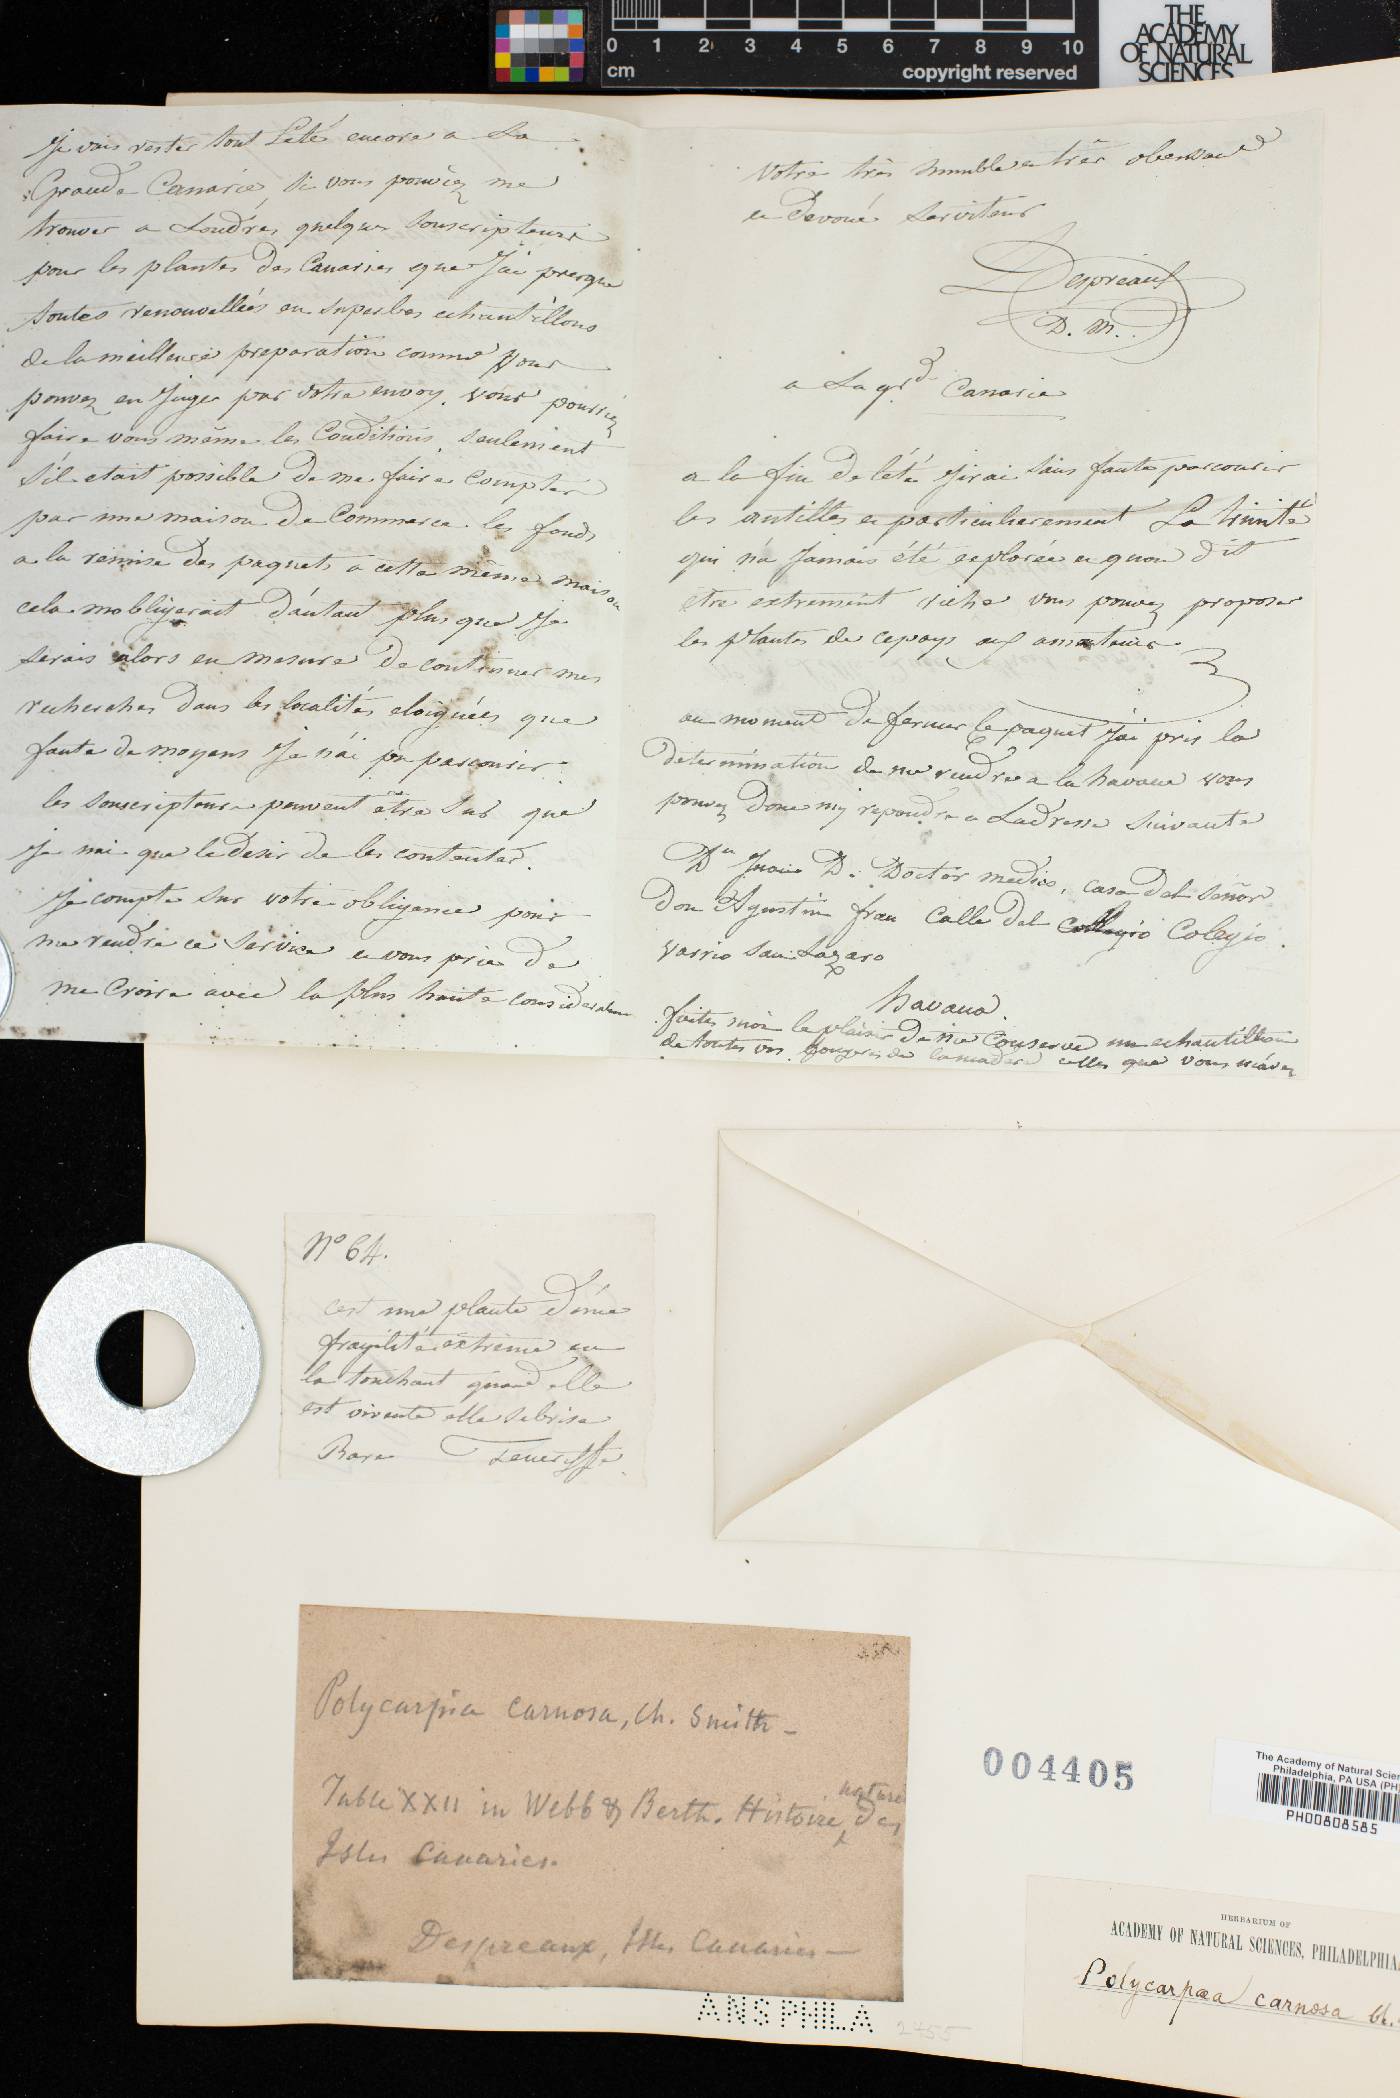 0 1 2 3 4 5 6 7 8 9 10
cm
copyright reserved
THE
ACADEMY
OF NATURAL
SCIENCES
Je vais rester tout l'eté encore a La
Grande Canarie, si vous pouviez me
trouver a Londres, quelques souscripteurs
pour les plantes des Canaries que J'ai presque
toutes renouvelleés en superbes echantillons
de la meilleure preparation comme vous
pouvez en Juger par votre envoy. vous pourriez
faire vous même les Conditions, seulement
s'il etait possible de me faire compter
par une maison de Commerce les fonds
a la remise des paquets a cette même maison
cela mobligerait d'autant plus que Je
serais alors en mesure de continuer mes
recherches dans les localités eloignées que
faute de moyens Je n'ai pu parcourir.
les souscripteurs peuvent être sur que
Je n'ai que le desir de les contenter.
Je compte sur votre obligeance pour
me rendre ce service et vous prie de
me Croire avec la plus haute consideration
Votre très humble et très obeissant
et devoué serviteur
Despreaux
D. M.
a La grd Canarie
a la fin de l'été J'irai sans faute parcourir
les antilles et particulierement La trinité
qui n'a Jamais été explorée et qu'on dit
être extrement riche vous pouvez proposer
les plantes de ce pays aux amateurs.
au moment de fermer le paquet J'ai pris la
determination de me rendre a la havane vous
pouvez donc m'y repondre a L'adresse suivante
Dn Juan D. Doctor medico, casa del Señor
Don Agustin frau Calle del Colegio.
Varrio San Lazaro
havana.
faites moi le plaisir de me conserver un echantillon
de toutes vos fougeres de lamadere celles que vous m'avez
No 64.
c'est une plante d'une
fragilité extrême en
la touchant quand elle
est vivante elle se brise
Rare Teneriffe
Polycarpia carnosa, Ch. Smith –
Table XXII in Webb & Berth. Histoire nature des
Isles Canaries.
Despreaux, Isles Canaries –
004405
The Academy of Natural Scien
Philadelphia, PA USA (PH)
PH00808585
HERBARIUM OF
ACADEMY OF NATURAL SCIENCES, PHILADELPHIA
Polycarpæa carnosa Ch.
ANS PHILA
2455